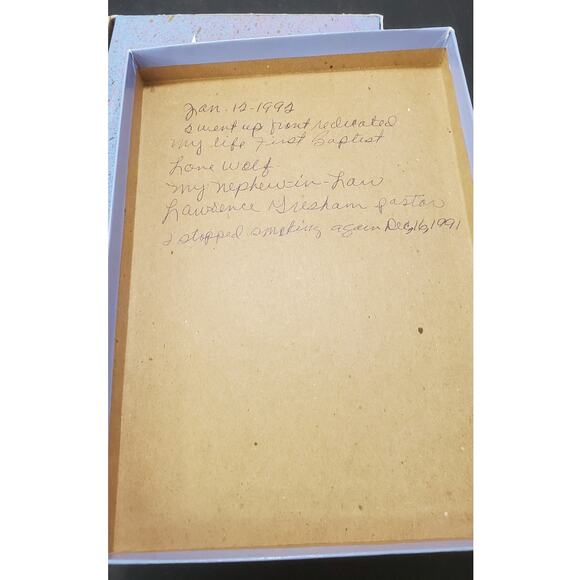 Jan. 12-1992
I went up front redicated
my life First Baptist
Lone Wolf
my nephew-in-Law
Lawrence Gresham pastor
I stopped smoking again Dec, 16, 1991